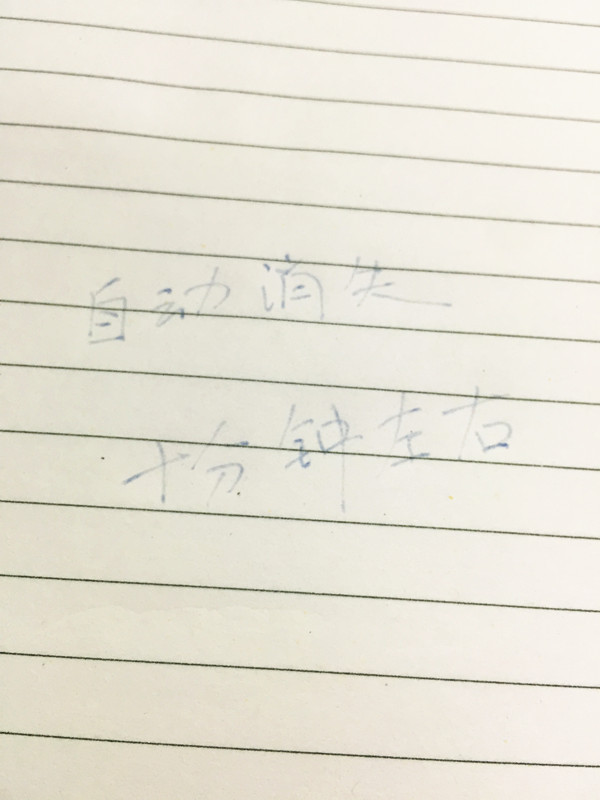 自动消失
十分钟左右